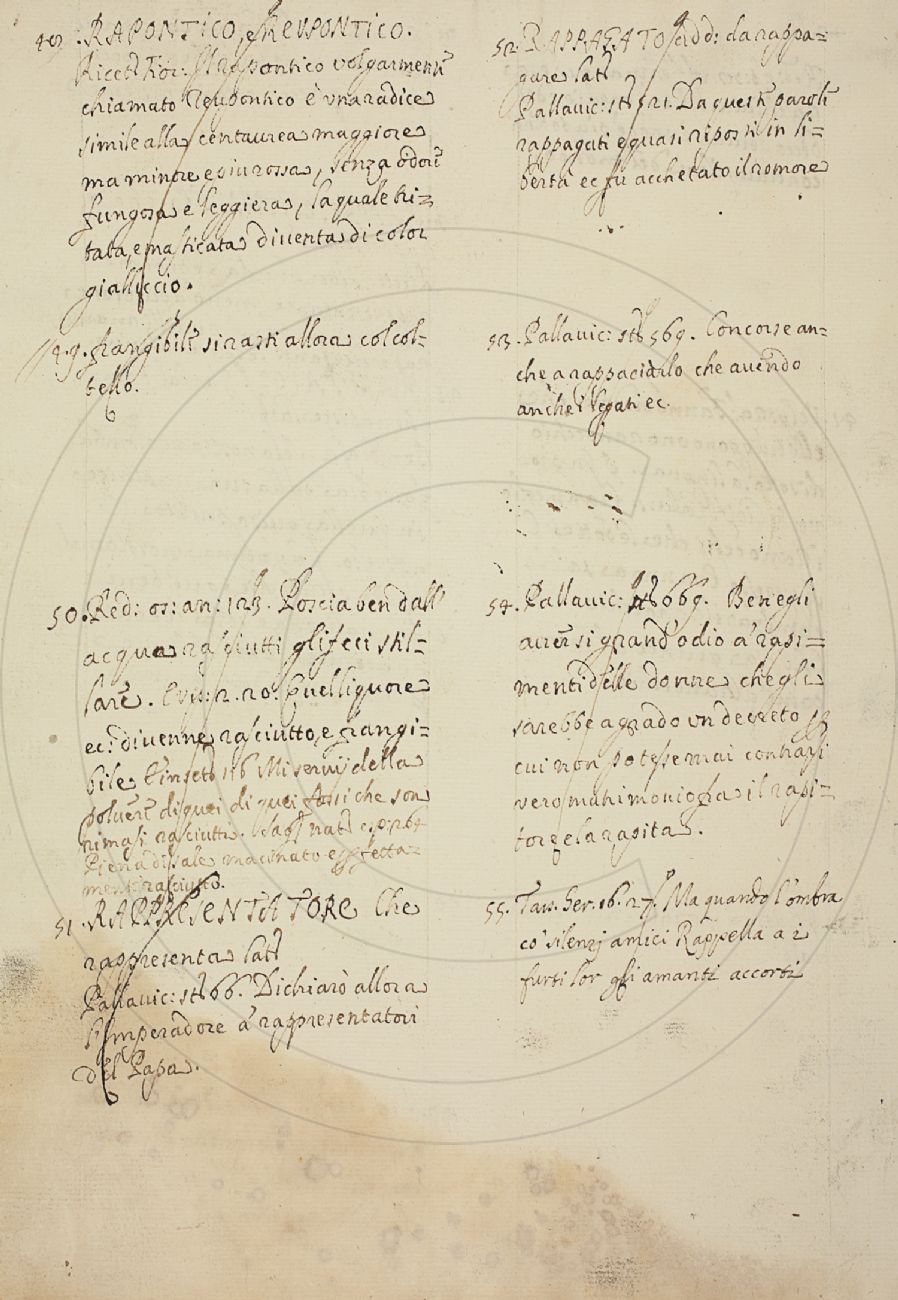 49. RAPONTICO, e REUPONTICO.
Ricet: Fior: Il rapontico volgarmente
chiamato Reupontico è una radice
simile alla centaurea maggiore
ma minore e piu rossa, senza odore
fungosa e leggiera, la quale tri=
tata, e masticata diventa di color
gialliccio.
49. frangibili si rasti allora col col=
tello.
50. Red: os: an: 123. Poscia ben dall'
acqua rasciutti gli feci stil=
lare. Quel liquore
ec: divenne rasciutto, e frangi=
bile. Mi servij della
polvere di quei di quei fossi che son
rimasi rasciutti. nat:
Piena di sale macinato e pfetta=
mente rasciutto.
51. RAPPRESENTATORE Che
rappresenta lat:
Pallavic: st: 66. Dichiarò allora
l'Imperadore a' rappresentatori
del Papa.
52. RAPPAGATO add: da rappa=
gare lat:
Pallavic: st: 521. Da queste parole
rappagati e quasi riposti in li=
bertà ec fu acchetato il romore
53. Pallavic: st: 569. Concorse an=
che a rappaciarlo che avendo
anche i legati ec.
54. Pallavic: st: 669. Ben egli
aver si grand'odio a' rapi=
menti delle donne che gli
sarebbe a grado un decreto p
cui non potesse mai contrarsi
vero matrimonio fra il rapi=
tore e la rapita.
55. Tass. Ger. 16. 27. Ma quando l'ombra
co' silenzj amici Rappella a i
furti lor gli amanti accorti